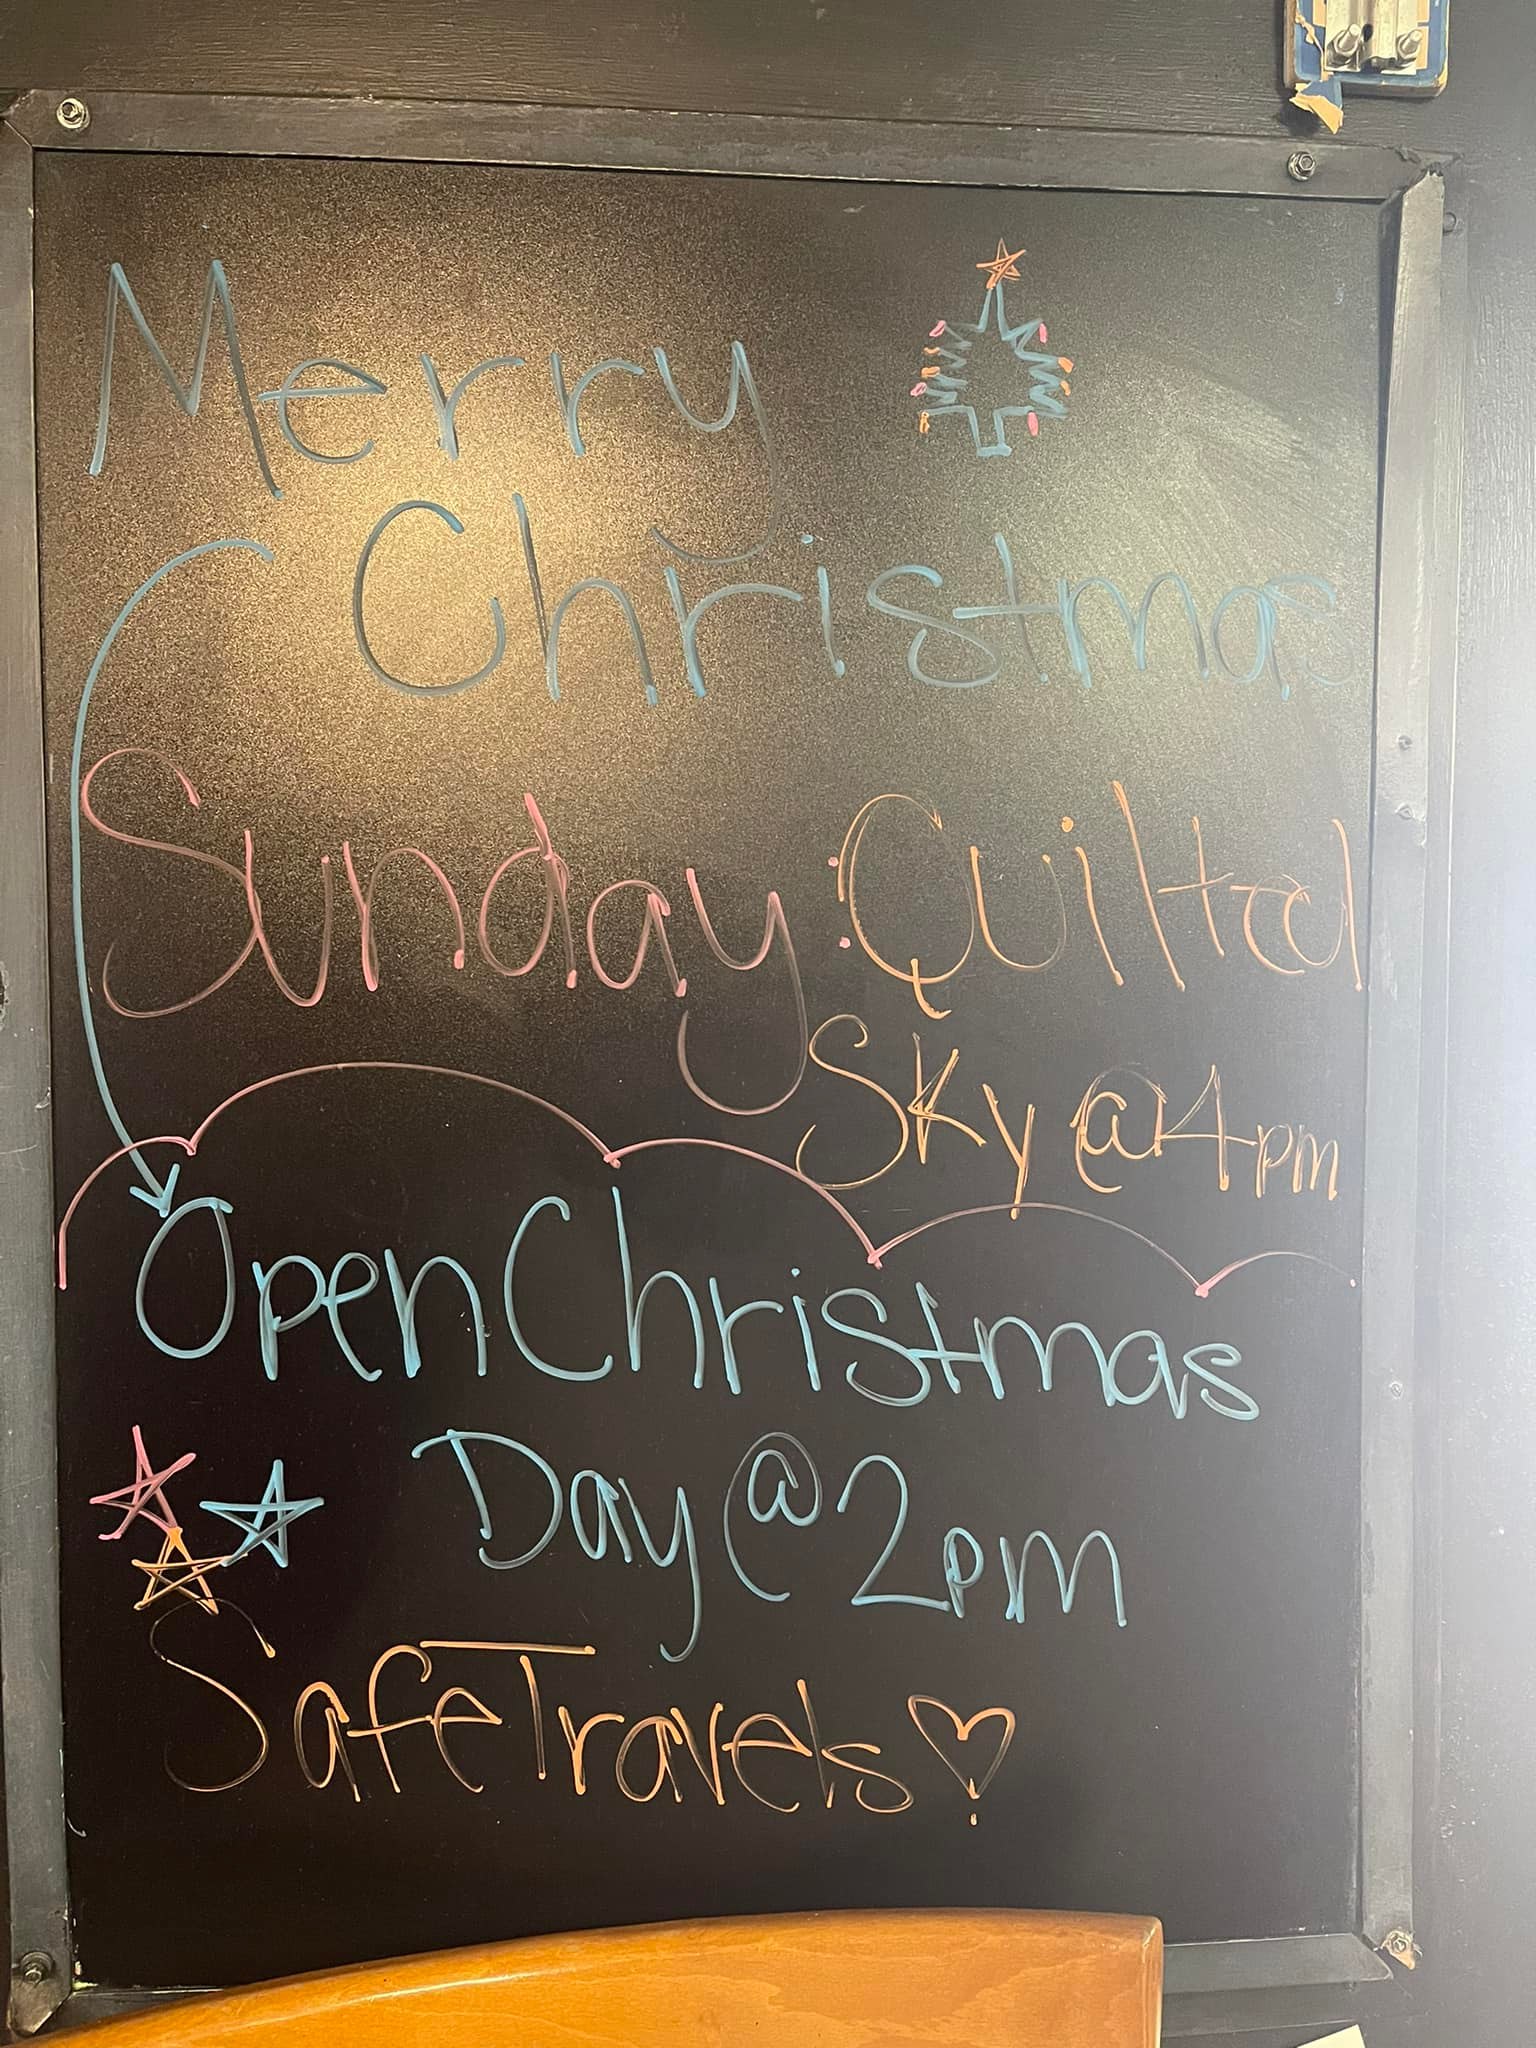 Merry
Christmas
Sunday: Quilted
Sky @ 4pm
Open Christmas
Day @ 2pm
Safe Travels